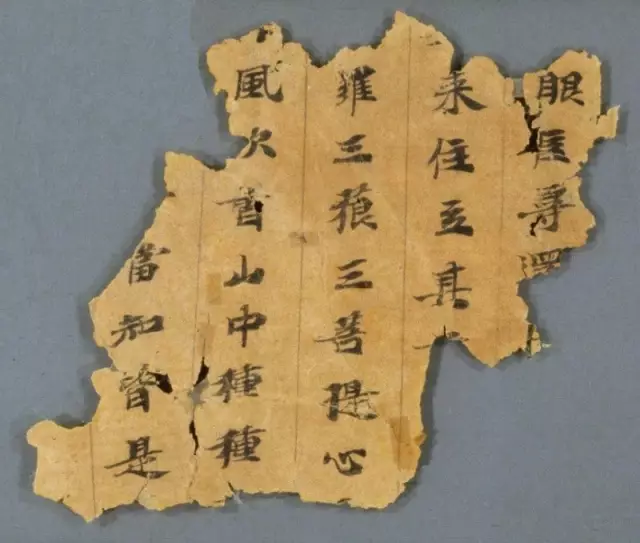 眼尋
来住立其
羅三藐三菩提心
風香山中種種
當知皆是